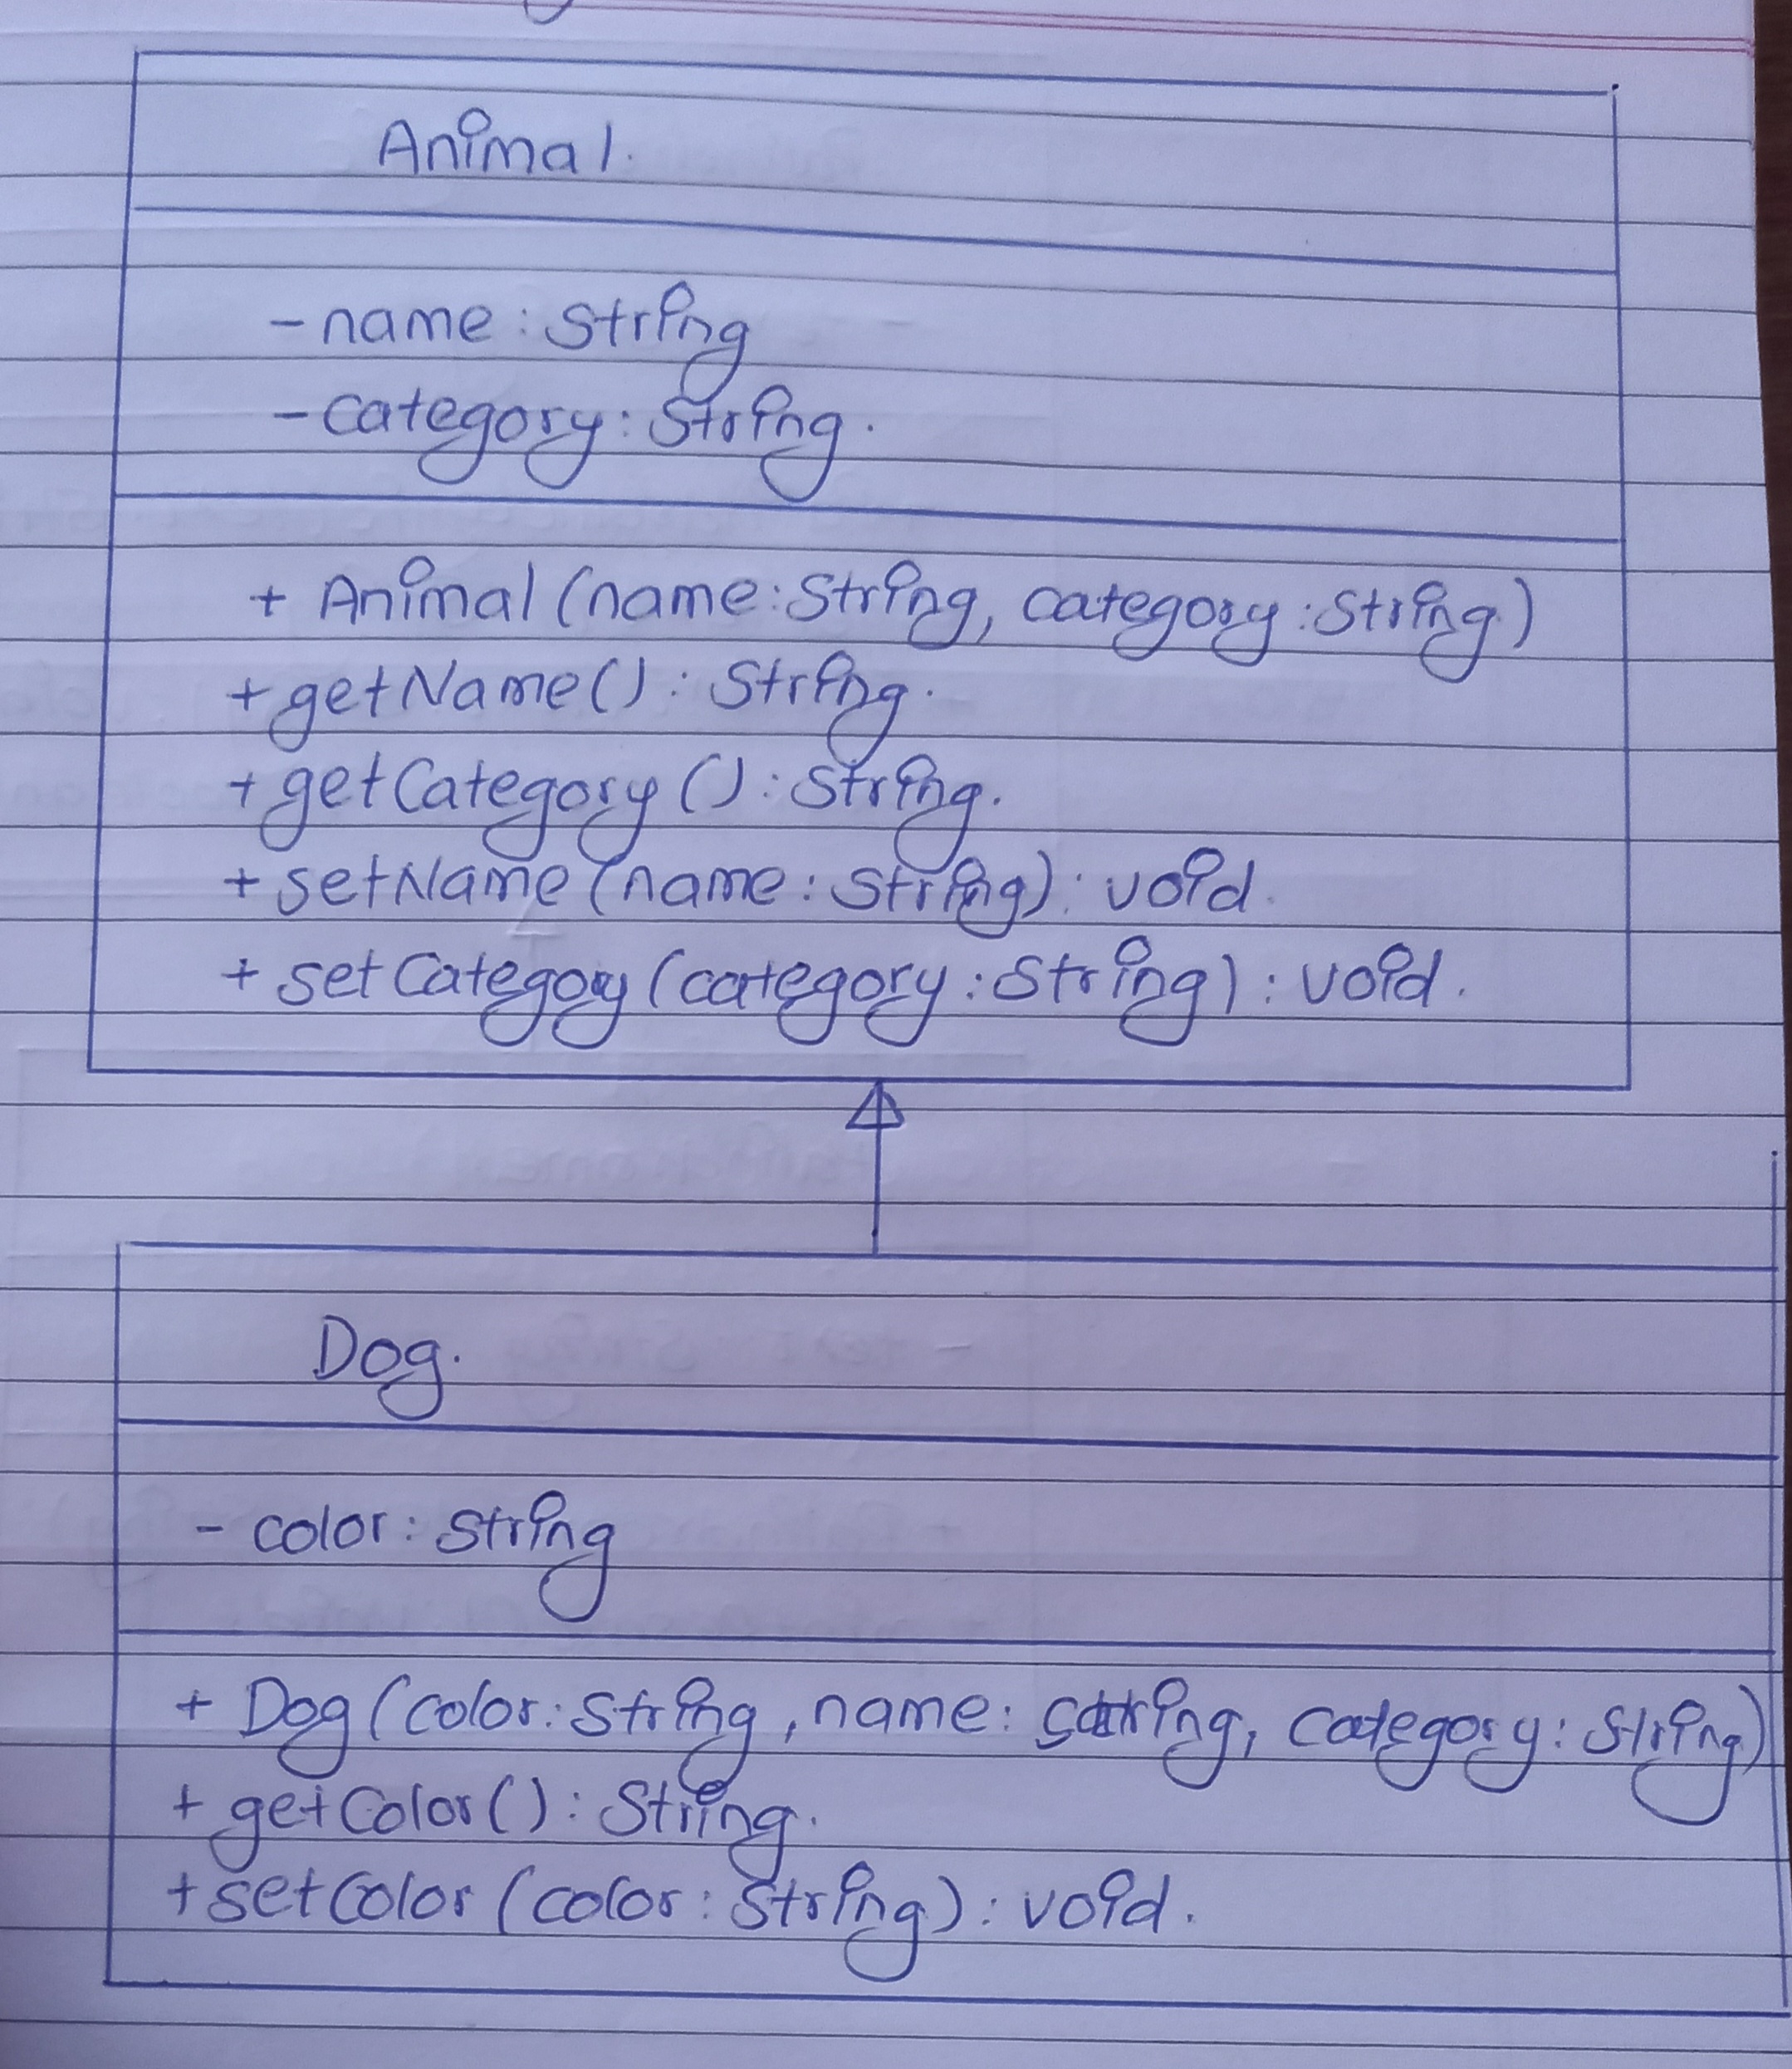 Animal.
- name : String
- category : String.
+ Animal (name : String, category : String)
+ getName() : String.
+ getCategory () : String.
+ setName (name : String) : void.
+ setCategory (category : String) : void.
Dog.
- color : String
+ Dog (color : String, name : String, category : String)
+ getColor() : String.
+ setColor (color : String) : void.